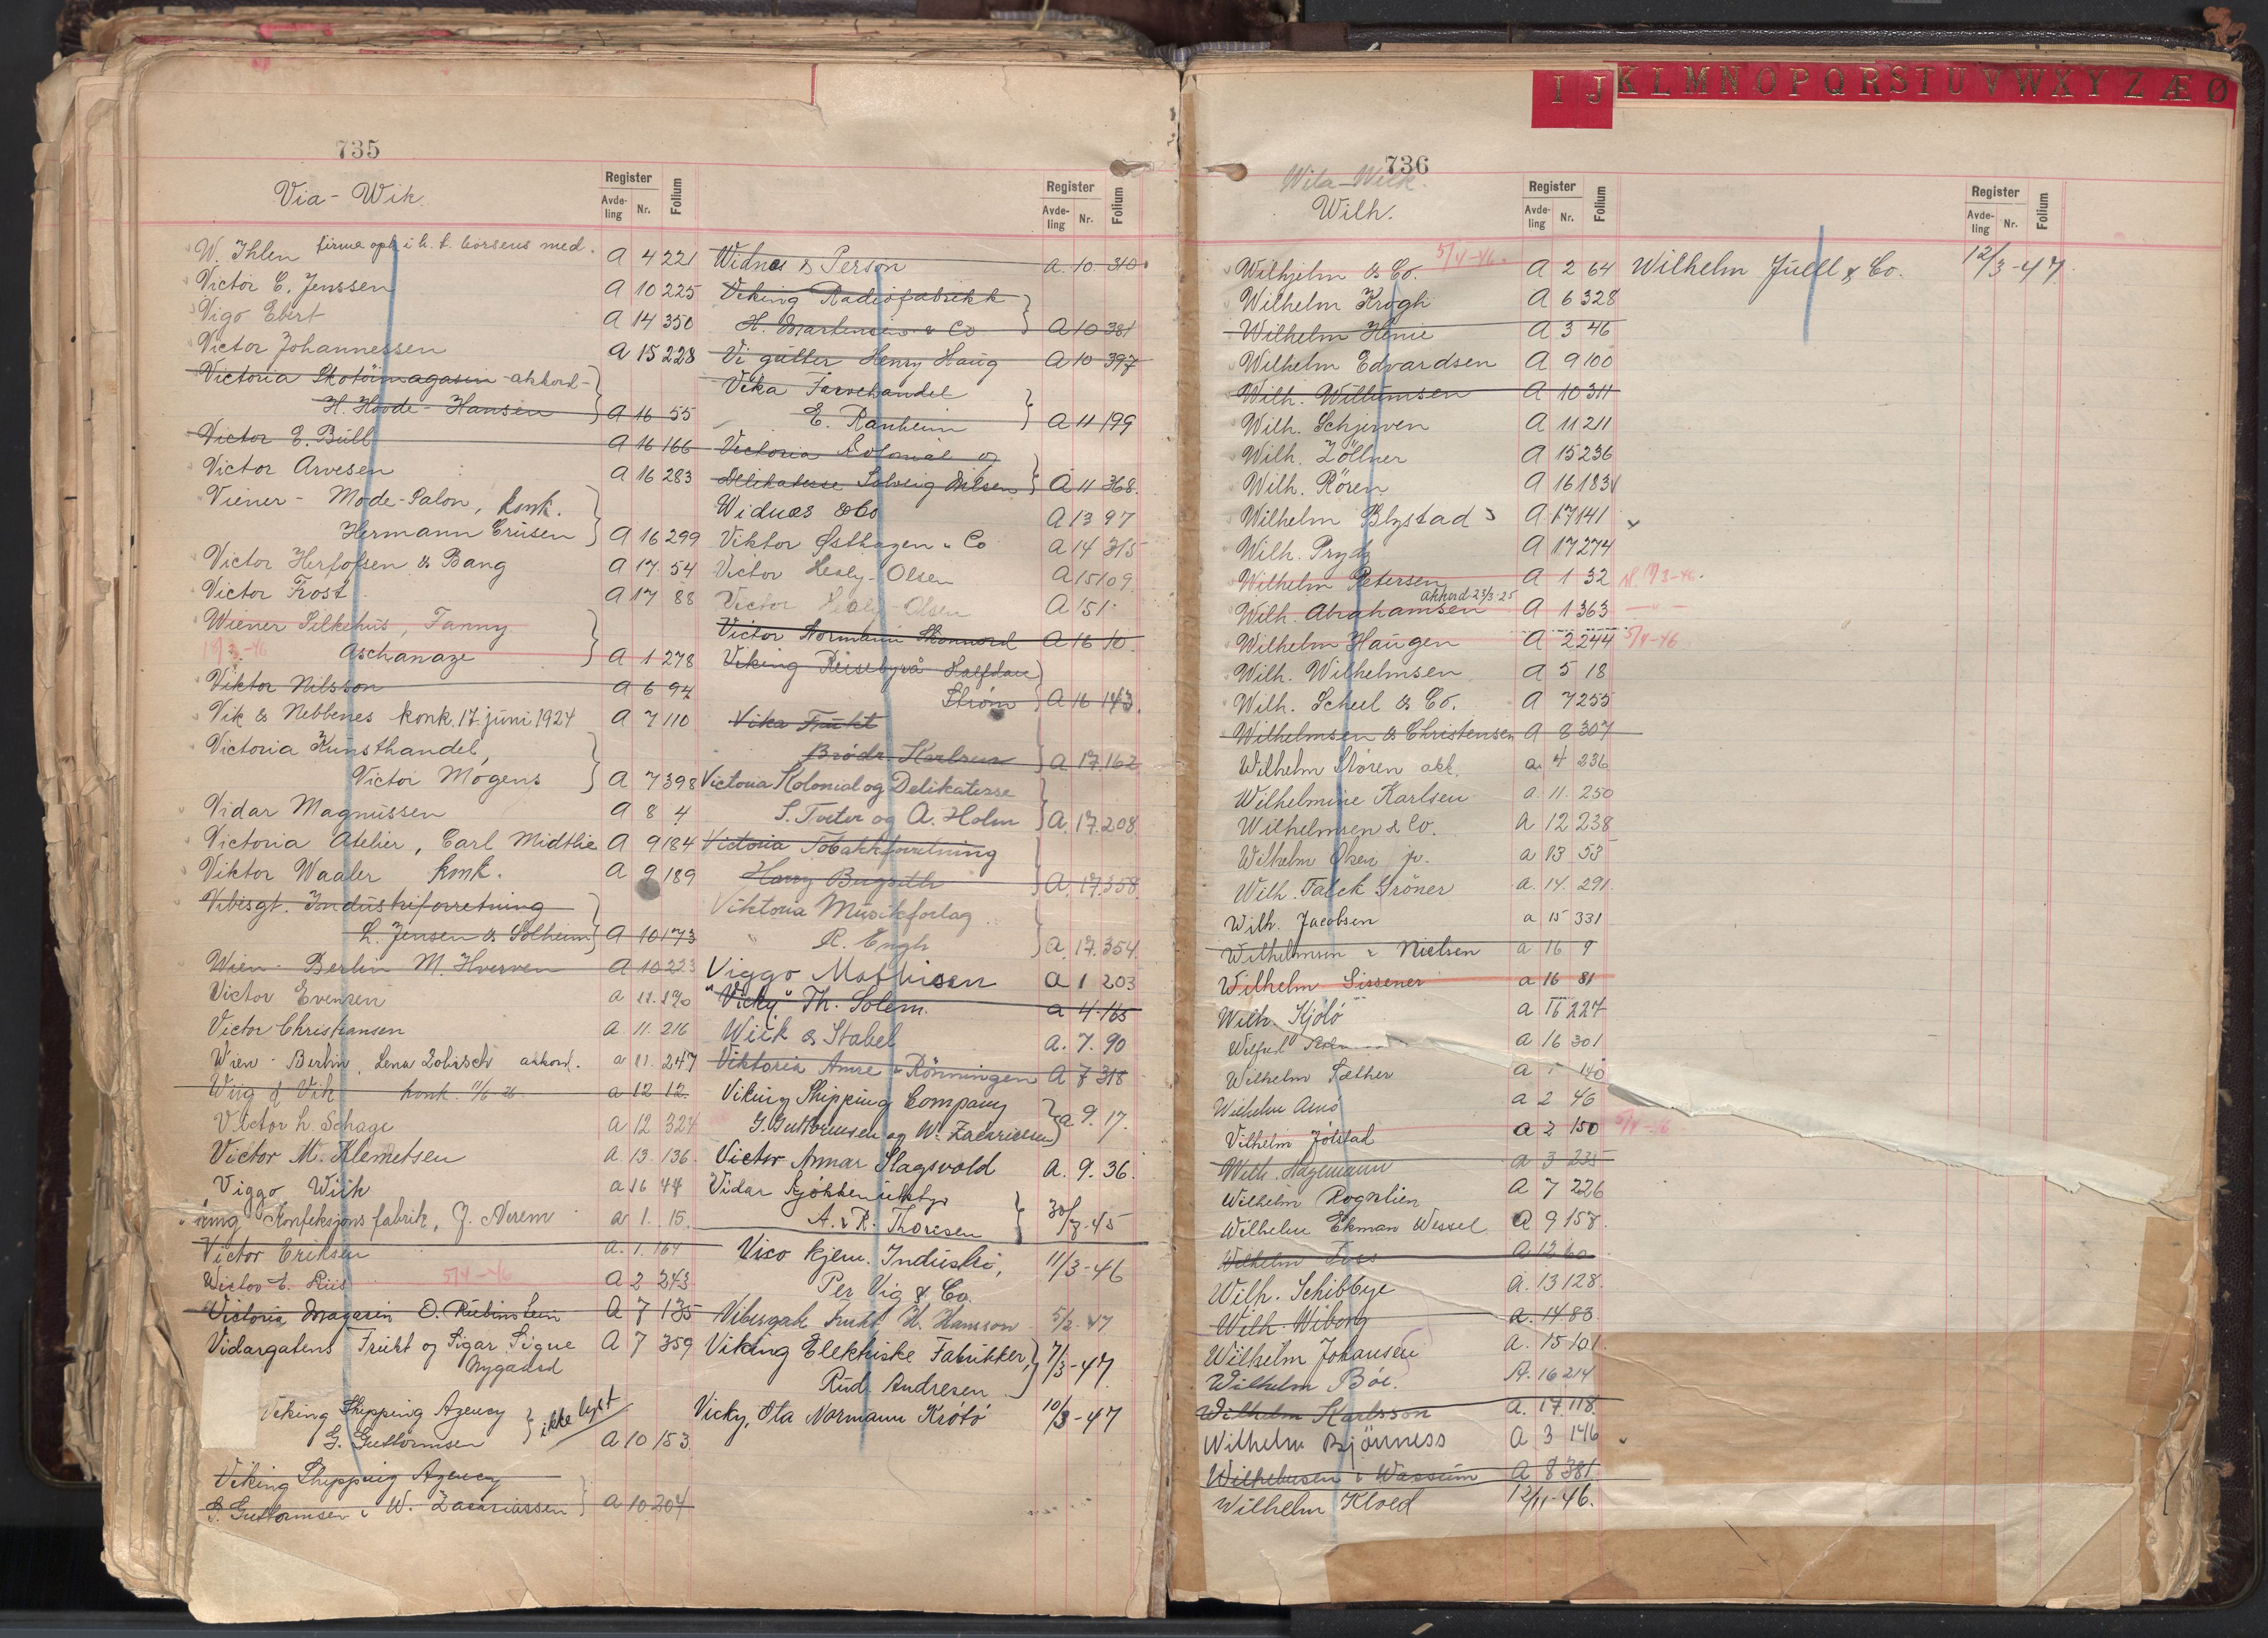 735
Via - Wik.
Register
Folium
Avde-
ling
Nr.
W. Ihlen firma oph. i h. t. børsens med.
A 4 221
Victor C. Jenssen A 10 225
Vigo Ebert A 14 350
Victor Johannessen A 15 228
Victoria Skotöimagasin - akkord -
H. Hovde-Hansen A 16 55
Victor E. Bull A 16 166
Victor Arvesen A 16 283
Viener - Mode-Salon, konk.
Hermann Crusen A 16 299
Victor Herfofsen & Bang A 17 54
Victor Frost A 17 88
Wiener Silkehus, Fanny
19/3-46 Aschanaze A 1 278
Viktor Nilsson A 6 94
Vik & Nebbenes konk. 17. juni 1924 A 7 110
Victoria Kunsthandel,
Victor Mogens A 7 398
Vidar Magnussen A 8 4
Victoria Atelier, Carl Midtlie A 9 184
Viktor Waaler konk. A 9 189
Vibesgt. Industriforretning
L. Jensen & Solheim A 10 173
Wien - Berlin M. Hverven A 10 223
Victor Evensen a 11. 190
Victor Christiansen a. 11. 216
Wien - Berlin, Lena Zobisch akkord. a 11. 247
Wiig & Vik konk. 11/6-26. a 12 12.
Victor L. Schage a 12 324
Victor M. Klemetsen A. 13. 136.
Viggo Wiik a 16 44
Konfeksjonsfabrik, J. Nerem a 1. 15.
Victor Eriksen a. 1. 164
Victor E. Riis 5/4-46 A 2 243
Victoria Magasin O. Rubinstein A 7 135
Vidargatens Frukt og Sigar Signe A 7 359
Nygaard
Viking Shipping Agency
G. Guttormsen ikke lyst A 10 153.
Viking Shipping Agency
G. Guttormsen & W. Zacariassen A 10 204
Register
Folium
Avde-
ling
Nr.
Widnes & Person A. 10. 310
Viking Radiofabrikk
H. Martensen & Co A 10 381
Vi gutter Henry Haug A 10 397
Vika Farvehandel
E. Ranheim A 11 199
Victoria Kolonial og
Delikatesse Solveig Nilsen A 11 368.
Widnes & Co A 13 97
Viktor Østhagen & Co A 14 315
Victor Healy-Olsen A 15 109
Victor Healy-Olsen A 151
Victor Normann A 16 10.
Viking Reisebyrå Halfdan
Strøm A 16 143.
Vika Frukt
Brödr. Karlsen A 17. 162
Victoria Kolonial og Delikatesse
S. Toster og A. Holm A. 17. 208.
Victoria Tobakkforretning
Harry A. 17. 358
Viktoria Musikforlag
R. Engh a. 17. 354.
Viggo Mathisen A 1 203
"Vicky" Th. Solem. a 4. 165
Wiik & Stabel a. 7. 90
Viktoria Amre & Rönningen A 7 318
Viking Shipping Company
G. Guttormsen og W. Zacariassen a 9. 17.
Victor Annar Slagsvold A. 9. 36.
Vidar Kjökkenutstyr
A. & R. Thoresen 30/7-45
Vico kjem. Industri, 11/3-46
Per Vig & Co.
Vibesgate Frukt H. Hansson 5/2-47
Viking Elektriske Fabrikker, 7/3-47
Rud. Andresen
Vicky, Ota Normann Krötö 10/3-47
I J K L M N O P Q R S T U V W X Y Z Æ Ø
736
Wila - Wilk.
Wilh.
Register
Folium
Avde-
ling
Nr.
Wilhjelm & Co. 5/4-46. A 2 64
Wilhelm Krogh A 6 328
Wilhelm Henie A 3 46
Wilhelm Edvardsen A 9 100
Wilh. Willumsen A 10 311
Wilh. Schjerven A 11 211
Wilh. Zöllner A 15 236
Wilh. Rören A 16 183
Wilhelm Blystad A. 17 141
Wilh. Prydz A 17 274
Wilhelm Petersen A 1 32 19/3-46.
Wilh. Abrahamsen akkord 23/3-25 A 1 363
Wilhelm Haugen A 2 244 5/4-46
Wilh. Wilhelmsen A 5 18
Wilh. Scheel & Co. A 7 255
Wilhelmsen & Christensen A 8 307
Wilhelm Støren akk. a. 4 236
Wilhelmine Karlsen a. 11. 250
Wilhelmsen & Co. A 12 238
Wilhelm Olsen jr. a 13 53
Wilh. Falck Gröner a. 14. 291.
Wilh. Jacobsen a 15 331
Wilhelmsen & Nielsen a 16 9
Wilhelm Sissener a 16 81
Wilh. Kjölö a 16 227
Wilfred a 16 301
Wilhelm Sæther a 1 140
Wilhelm Arnö a 2 46
Vilhelm Jölstad a 2 150 5/4-46
Wilh. Hagemann a 3 235
Wilhelm Rognlien A 7 226
Wilhelm Ekman Wessel A 9 158.
Wilhelm Foss A 12 60
Wilh. Schibbye A. 13 128.
Wilh. Wiborg a. 14 83.
Wilhelm Johansen a. 15 101.
Wilhelm Böe. A. 16 214
Wilhelm Karlsson a. 17. 118.
Wilhelm Bjönness A 3 146
Wilhelmsen & Wassum A 8 381
Wilhelm Kloed 12/11-46.
Register
Folium
Avde-
ling
Nr.
Wilhelm Juell & Co. 12/3-47.